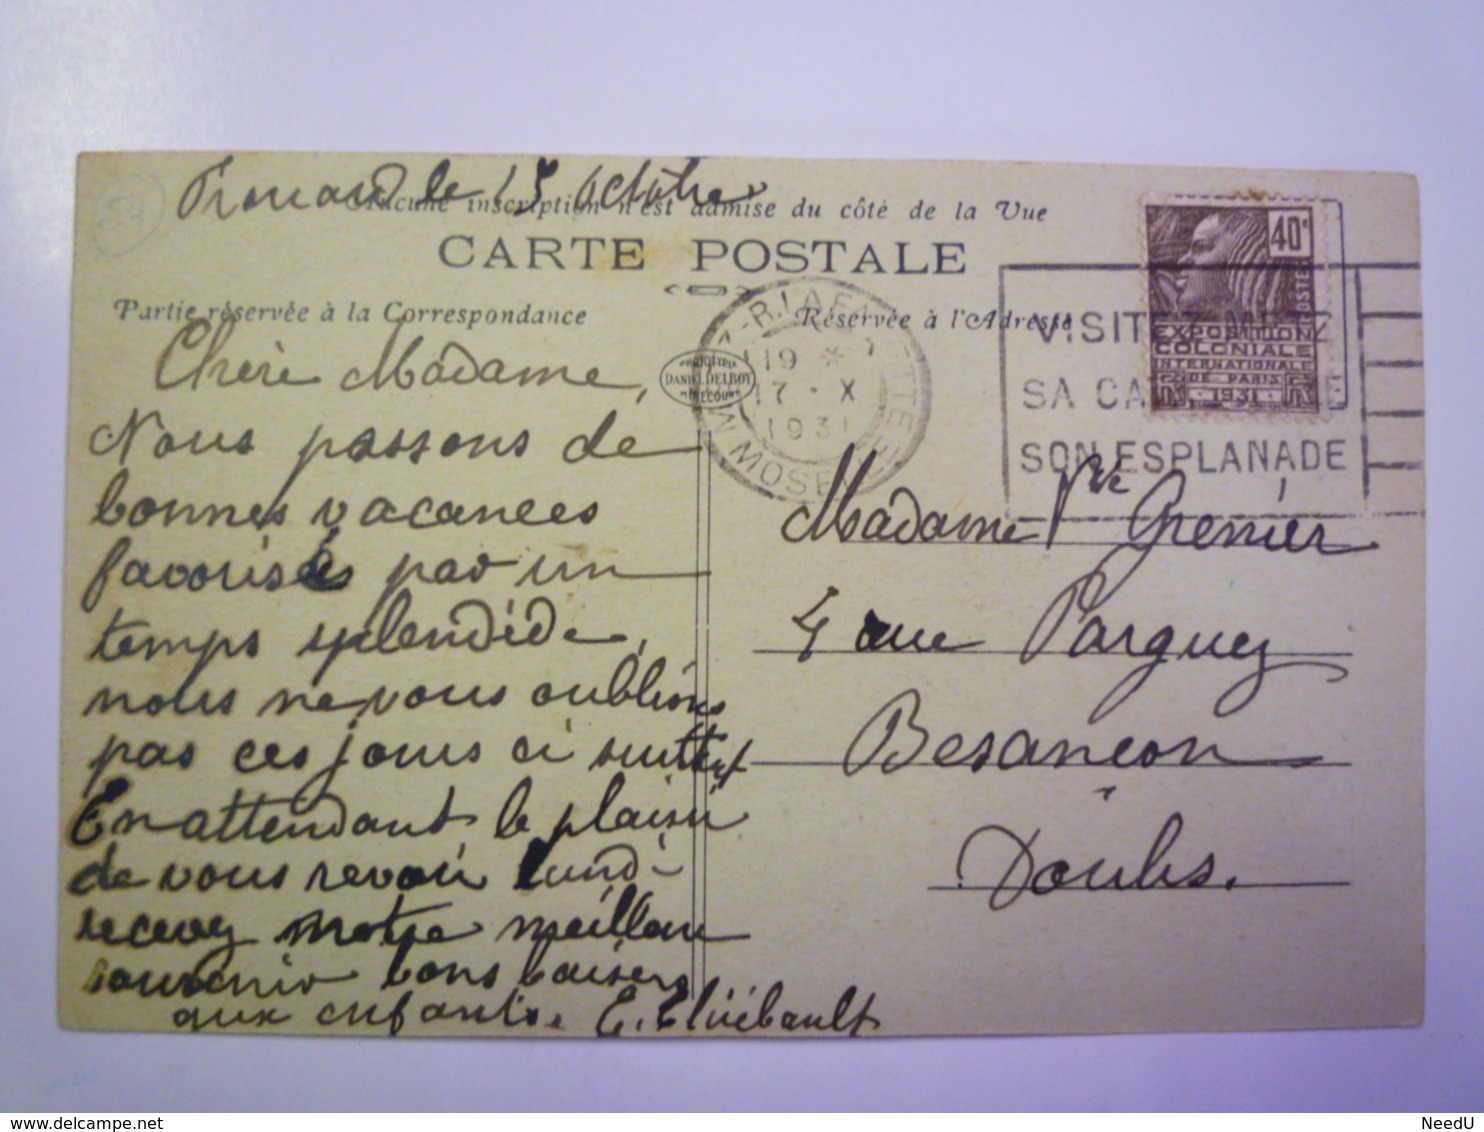 54
le 15 octobre
Aucune inscription n'est admise du côté de la Vue
CARTE POSTALE
Partie réservée à la Correspondance
Réservée à l'Adresse
PHOTOTYPIE
DANIEL DELBOY
MIRECOURT
Chère Madame,
Nous passons de
bonnes vacances
favorisés par un
temps splendide,
nous ne vous oublions
pas ces jours ci
En attendant le plaisir
de vous revoir lundi
recevez notre meilleur
souvenir bons baisers
aux enfants. E. Thiébault
40c
POSTES
EXPOSITION
COLONIALE
INTERNATIONALE
DE PARIS
1931
19 *
17 - X
1931
VISITEZ METZ
SA
SON ESPLANADE
Madame Vve Grenier
4 rue
Besançon
Doubs.
delcampe.net
NeedU